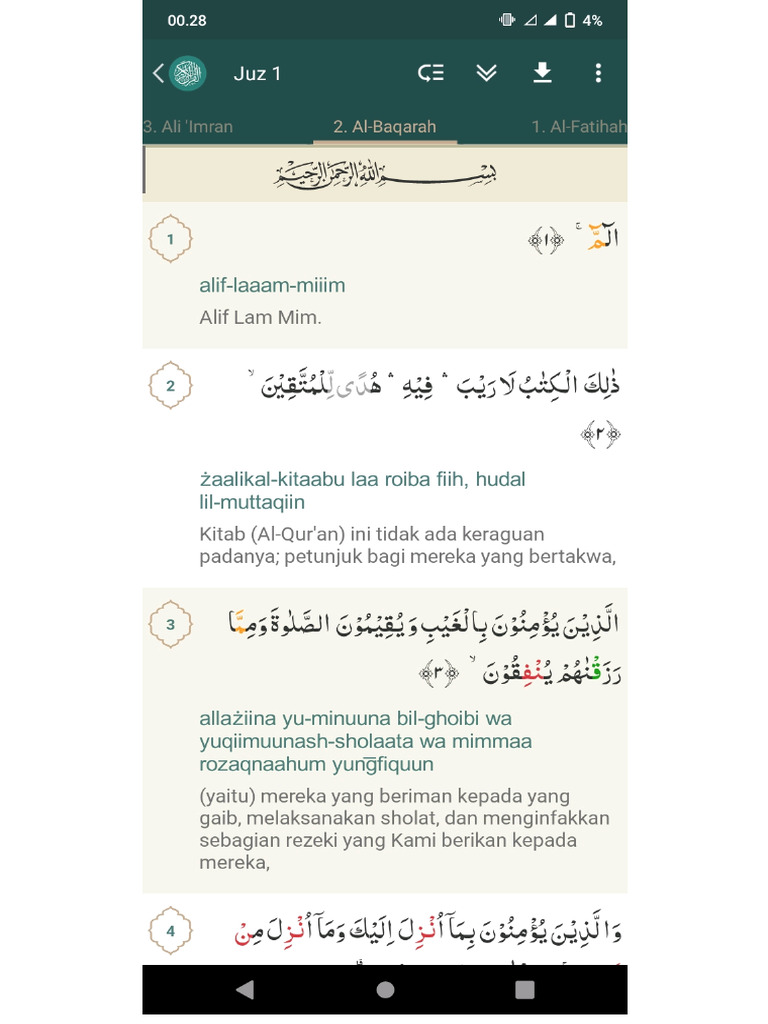 00.28
4%
Juz 1
3. Ali 'Imran
2. Al-Baqarah
1. Al-Fatihah
بِسْمِ اللّٰهِ الرَّحْمٰنِ الرَّحِيْمِ
1
الۤمّۤ ۚ ﴿١﴾
alif-laaam-miiim
Alif Lam Mim.
2
ذٰلِكَ الْكِتٰبُ لَا رَيْبَ ۛ فِيْهِ ۛ هُدًى لِّلْمُتَّقِيْنَ ۙ
﴿٢﴾
żaalikal-kitaabu laa roiba fiih, hudal
lil-muttaqiin
Kitab (Al-Qur'an) ini tidak ada keraguan
padanya; petunjuk bagi mereka yang bertakwa,
3
الَّذِيْنَ يُؤْمِنُوْنَ بِالْغَيْبِ وَيُقِيْمُوْنَ الصَّلٰوةَ وَمِمَّا
رَزَقْنٰهُمْ يُنْفِقُوْنَ ۙ ﴿٣﴾
allażiina yu-minuuna bil-ghoibi wa
yuqiimuunash-sholaata wa mimmaa
rozaqnaahum yung̅fiquun
(yaitu) mereka yang beriman kepada yang
gaib, melaksanakan sholat, dan menginfakkan
sebagian rezeki yang Kami berikan kepada
mereka,
4
وَالَّذِيْنَ يُؤْمِنُوْنَ بِمَاۤ اُنْزِلَ اِلَيْكَ وَمَاۤ اُنْزِلَ مِنْ